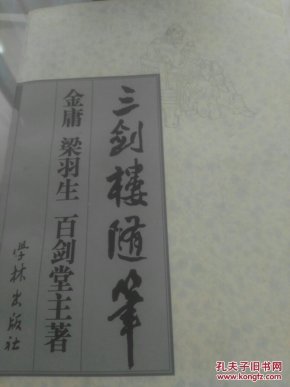 三剑楼随笔
金庸 梁羽生 百剑堂主著
学林出版社
孔夫子旧书网